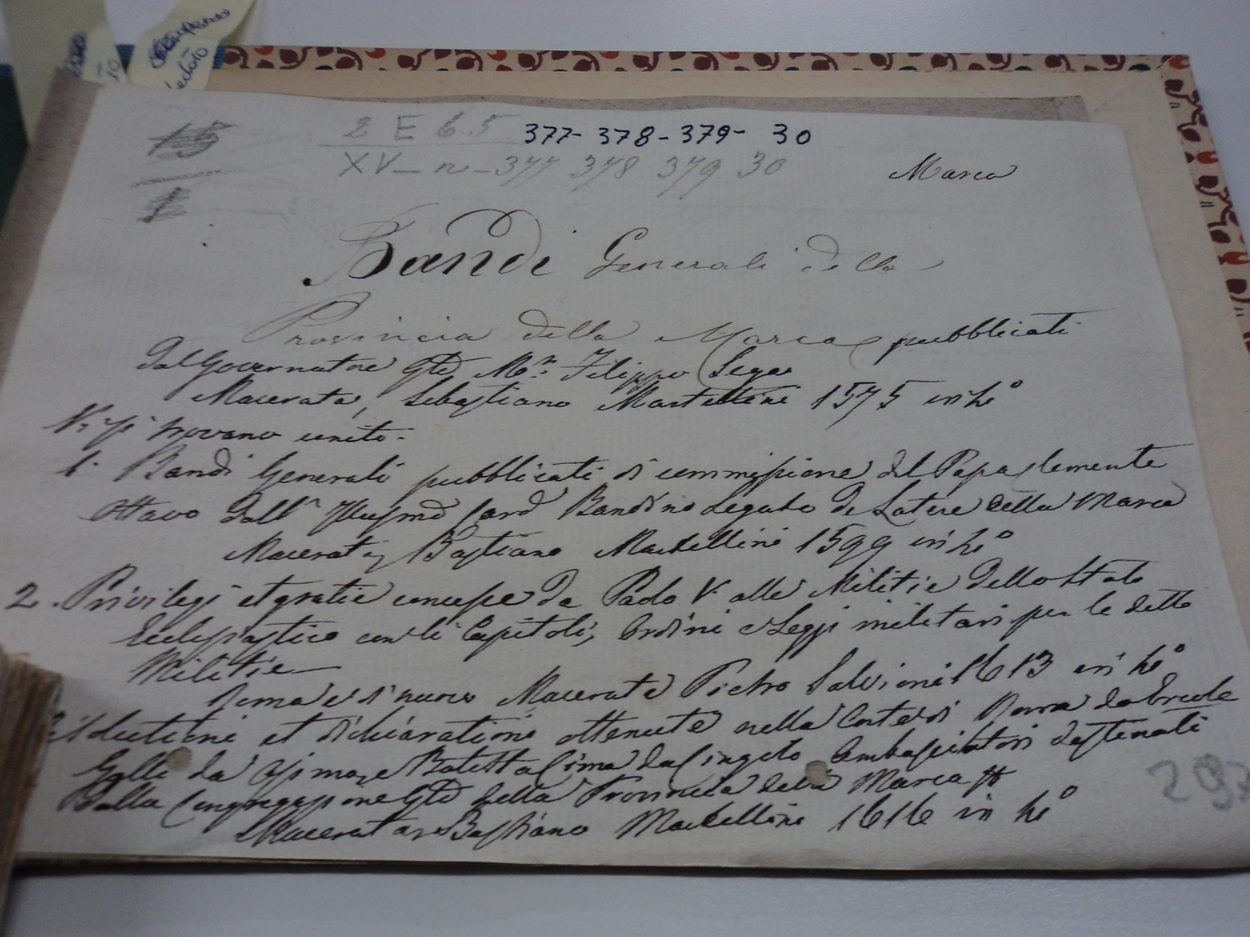 15
2 E 6.5 377-378-379- 30
XV-n-377 378 379 30
1
Marca
Bandi Generali della
Provincia della Marca pubblicati
dal Governatore Gñle Mr. Filippo Sega
Macerata, Sebastiano Martellini 1575 in 4º
Vi si trovano unito.
1. Bandi Generali pubblicati di commissione del Papa Clemente
Ottavo dall' Illusmo Card Bandino Legato De Latere della Marca
Macerata Bastiano Martellini 1599 in 4º
2. Privilegi et gratie concesse da Paolo V. alle Militie dello Stato
Ecclesiastico con li Capitoli, Ordini e Leggi militari per le dette
Militie
Roma e di nuovo Macerata Pietro Salvioni 1613 in 4º
et dichiarationi ottenute nella Corte di Roma da
da Batista Cima da Cingoli Ambasciatori destinati
Dalla Congregazione Gñle della Provincia della Marca
Macerata Bastiano Martellini 1616 in 4º